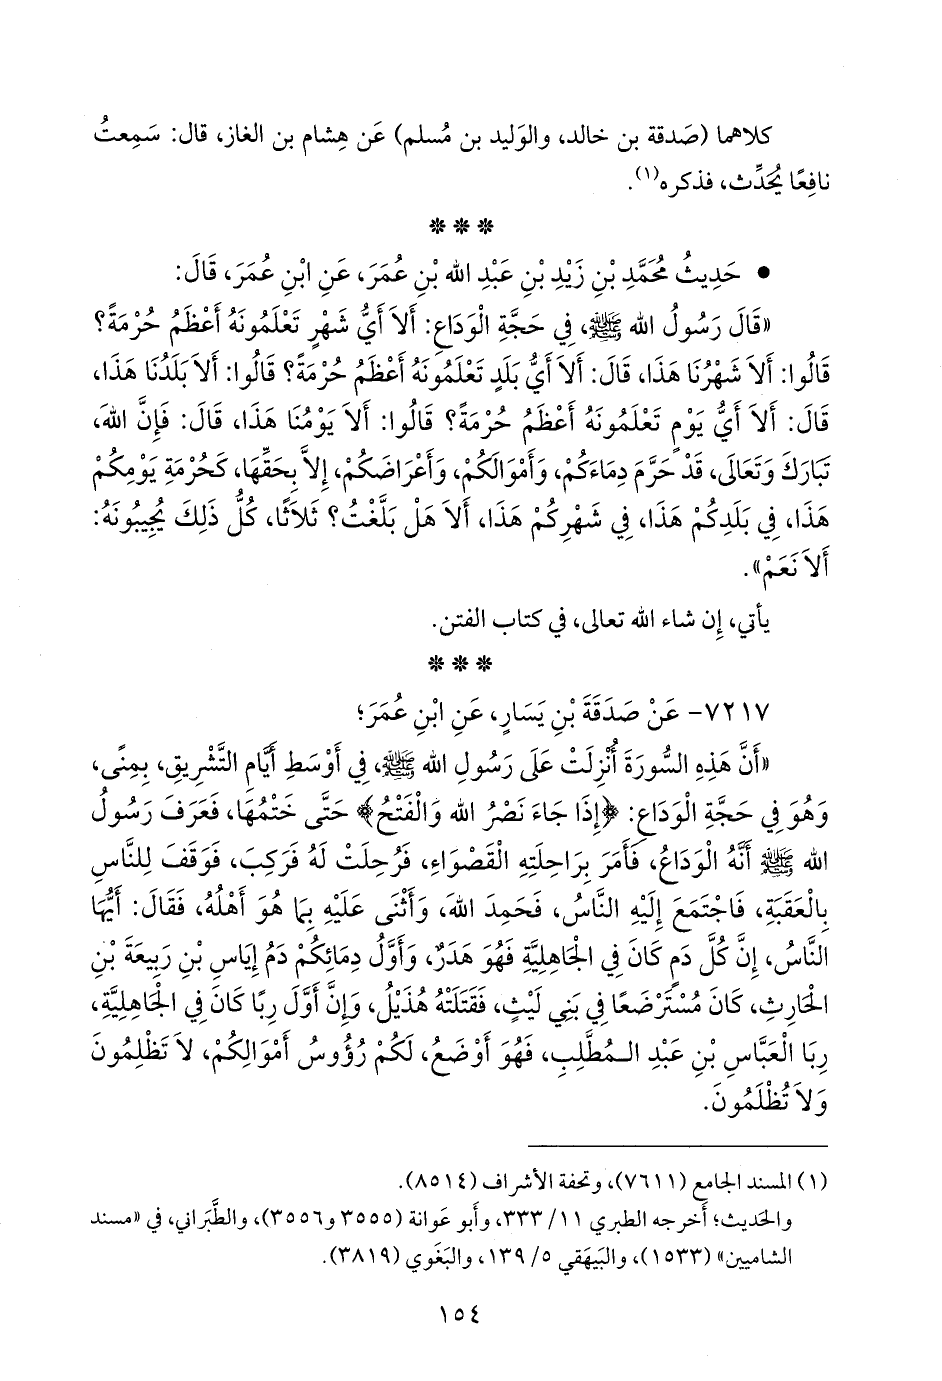 كلاهما (صَدقة بن خالد، والوَليد بن مُسلم) عَن هِشام بن الغاز، قال: سَمِعتُ
نافِعًا يُحَدِّث، فذكره(١).
* * *
• حَدِيثُ مُحَمَّدِ بْنِ زَيْدِ بْنِ عَبْدِ الله بْنِ عُمَرَ، عَنِ ابْنِ عُمَرَ، قَالَ:
«قَالَ رَسُولُ الله ﷺ، فِي حَجَّةِ الْوَدَاعِ: أَلاَ أَيُّ شَهْرٍ تَعْلَمُونَهُ أَعْظَمُ حُرْمَةً؟
قَالُوا: أَلاَ شَهْرُنَا هَذَا، قَالَ: أَلاَ أَيُّ بَلَدٍ تَعْلَمُونَهُ أَعْظَمُ حُرْمَةً؟ قَالُوا: أَلاَ بَلَدُنَا هَذَا،
قَالَ: أَلاَ أَيُّ يَوْمٍ تَعْلَمُونَهُ أَعْظَمُ حُرْمَةً؟ قَالُوا: أَلاَ يَوْمُنَا هَذَا، قَالَ: فَإِنَّ اللهَ،
تَبَارَكَ وَتَعَالَى، قَدْ حَرَّمَ دِمَاءَكُمْ، وَأَمْوَالَكُمْ، وَأَعْرَاضَكُمْ، إِلاَّ بِحَقِّهَا، كَحُرْمَةِ يَوْمِكُمْ
هَذَا، فِي بَلَدِكُمْ هَذَا، فِي شَهْرِكُمْ هَذَا، أَلاَ هَلْ بَلَّغْتُ؟ ثَلاَثًا، كُلُّ ذَلِكَ يُجِيبُونَهُ:
أَلاَ نَعَمْ».
يأتي، إِن شاء الله تعالى، في كتاب الفتن.
* * *
٧٢١٧- عَنْ صَدَقَةَ بْنِ يَسَارٍ، عَنِ ابْنِ عُمَرَ؛
«أَنَّ هَذِهِ السُّورَةَ أُنْزِلَتْ عَلَى رَسُولِ الله ﷺ، فِي أَوْسَطِ أَيَّامِ التَّشْرِيقِ، بِمِنًى،
وَهُوَ فِي حَجَّةِ الْوَدَاعِ: ﴿إِذَا جَاءَ نَصْرُ الله وَالْفَتْحُ﴾ حَتَّى خَتْمُهَا، فَعَرَفَ رَسُولُ
الله ﷺ أَنَّهُ الْوَدَاعُ، فَأَمَرَ بِرَاحِلَتِهِ الْقَصْوَاءِ، فَرُحِلَتْ لَهُ فَرَكِبَ، فَوَقَفَ لِلنَّاسِ
بِالْعَقَبَةِ، فَاجْتَمَعَ إِلَيْهِ النَّاسُ، فَحَمِدَ اللهَ، وَأَثْنَى عَلَيْهِ بِمَا هُوَ أَهْلُهُ، فَقَالَ: أَيُّهَا
النَّاسُ، إِنَّ كُلَّ دَمٍ كَانَ فِي الْجَاهِلِيَّةِ فَهُوَ هَدَرٌ، وَأَوَّلُ دِمَائِكُمْ دَمُ إِيَاسِ بْنِ رَبِيعَةَ بْنِ
الْحَارِثِ، كَانَ مُسْتَرْضَعًا فِي بَنِي لَيْثٍ، فَقَتَلَتْهُ هُذَيْلٌ، وَإِنَّ أَوَّلَ رِبًا كَانَ فِي الْجَاهِلِيَّةِ،
رِبَا الْعَبَّاسِ بْنِ عَبْدِ الـمُطَّلِبِ، فَهُوَ أَوْضَعُ، لَكُمْ رُؤُوسُ أَمْوَالِكُمْ، لاَ تَظْلِمُونَ
وَلاَ تُظْلَمُونَ.
(١) المسند الجامع (٧٦١١)، وتحفة الأشراف (٨٥١٤).
والحَديث؛ أَخرجه الطبري ١١/ ٣٣٣، وأَبو عَوانة (٣٥٥٥ و٣٥٥٦)، والطَّبَراني، في «مسند
الشاميين» (١٥٣٣)، والبَيهَقي ٥/ ١٣٩، والبَغَوي (٣٨١٩).
١٥٤